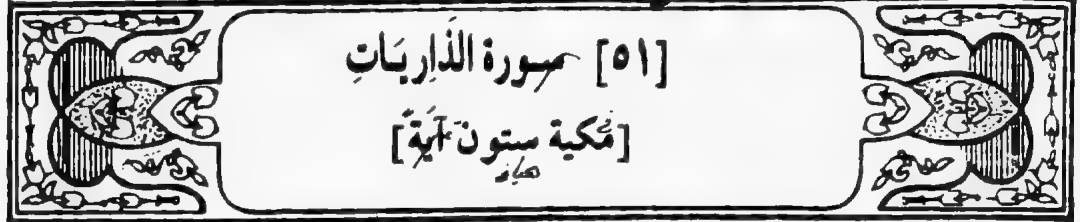 [٥١] سورة الذَارِيَاتِ
[مَكية ستونَ آيَةً]